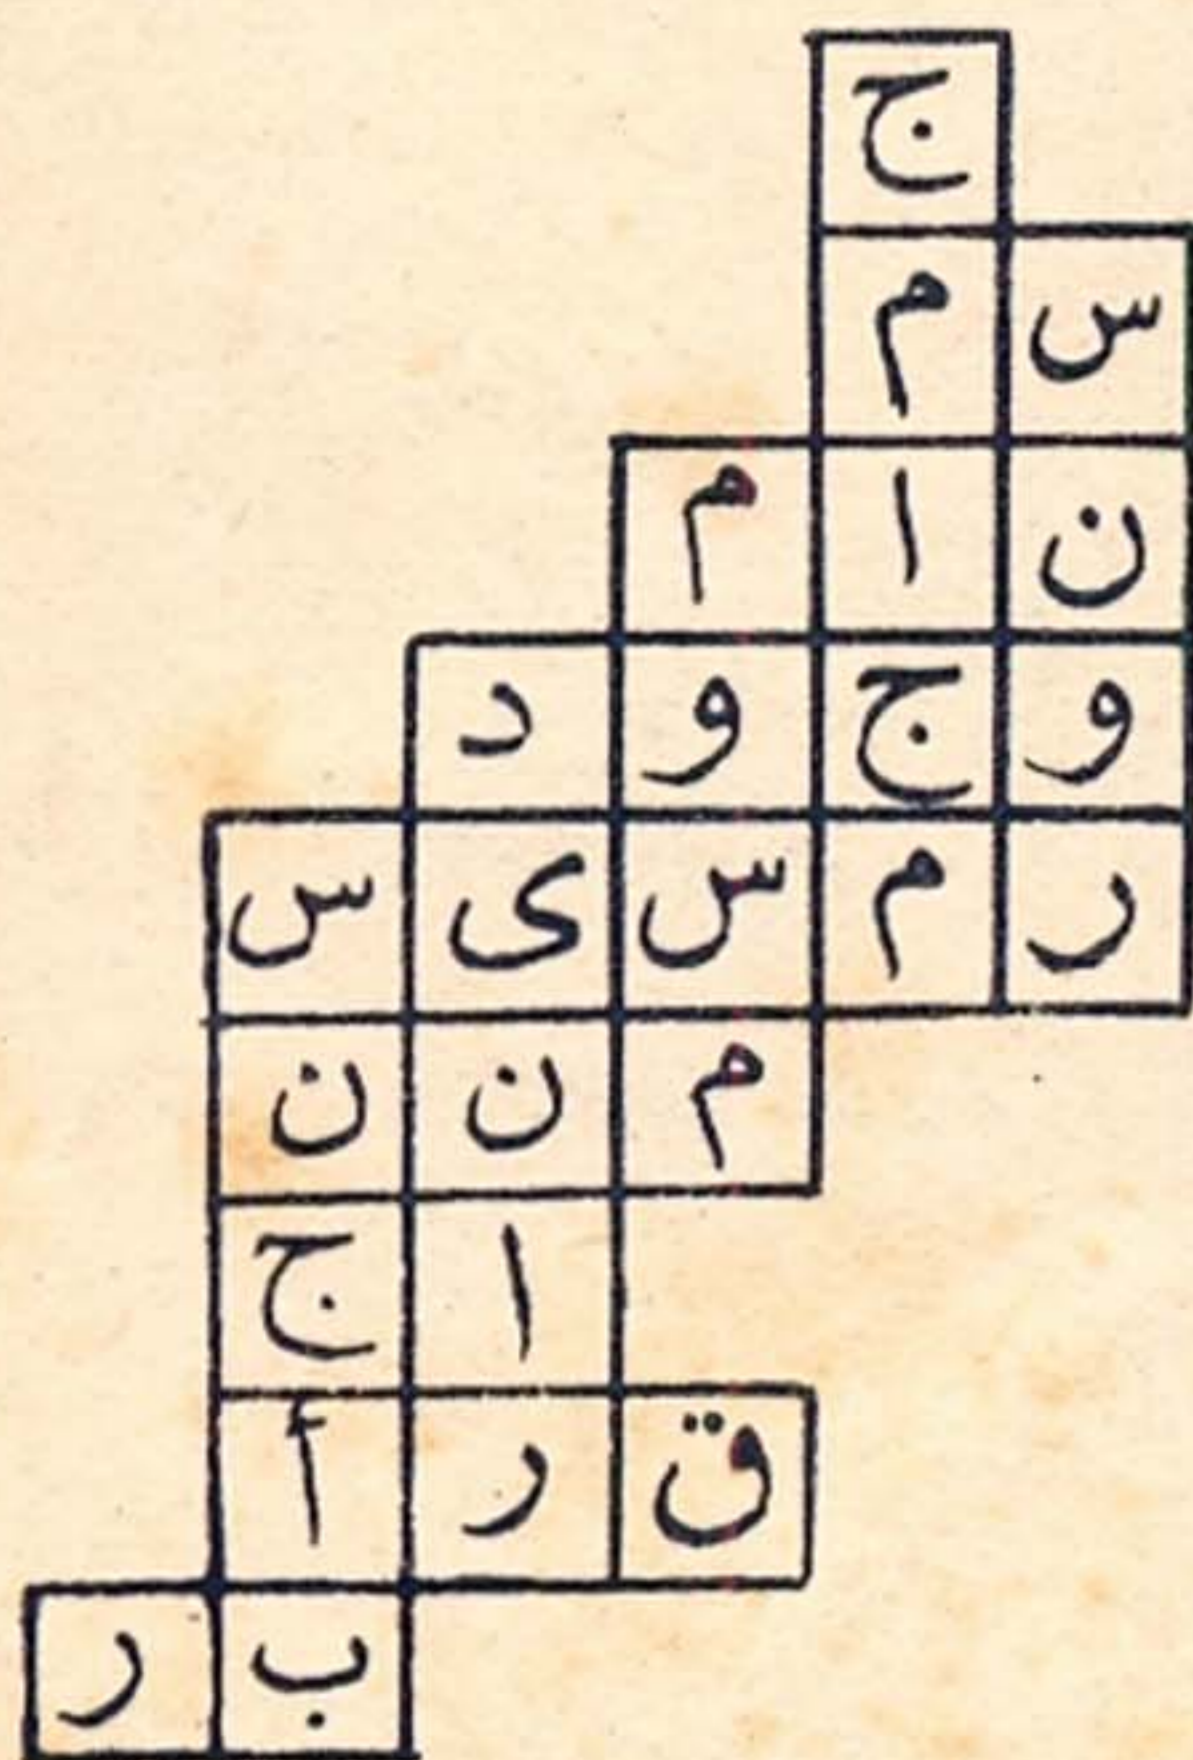 ج
س م
ن ا م
و ج و د
ر م س ى س
م ن ن
ا ج
ق ر أ
ب ر